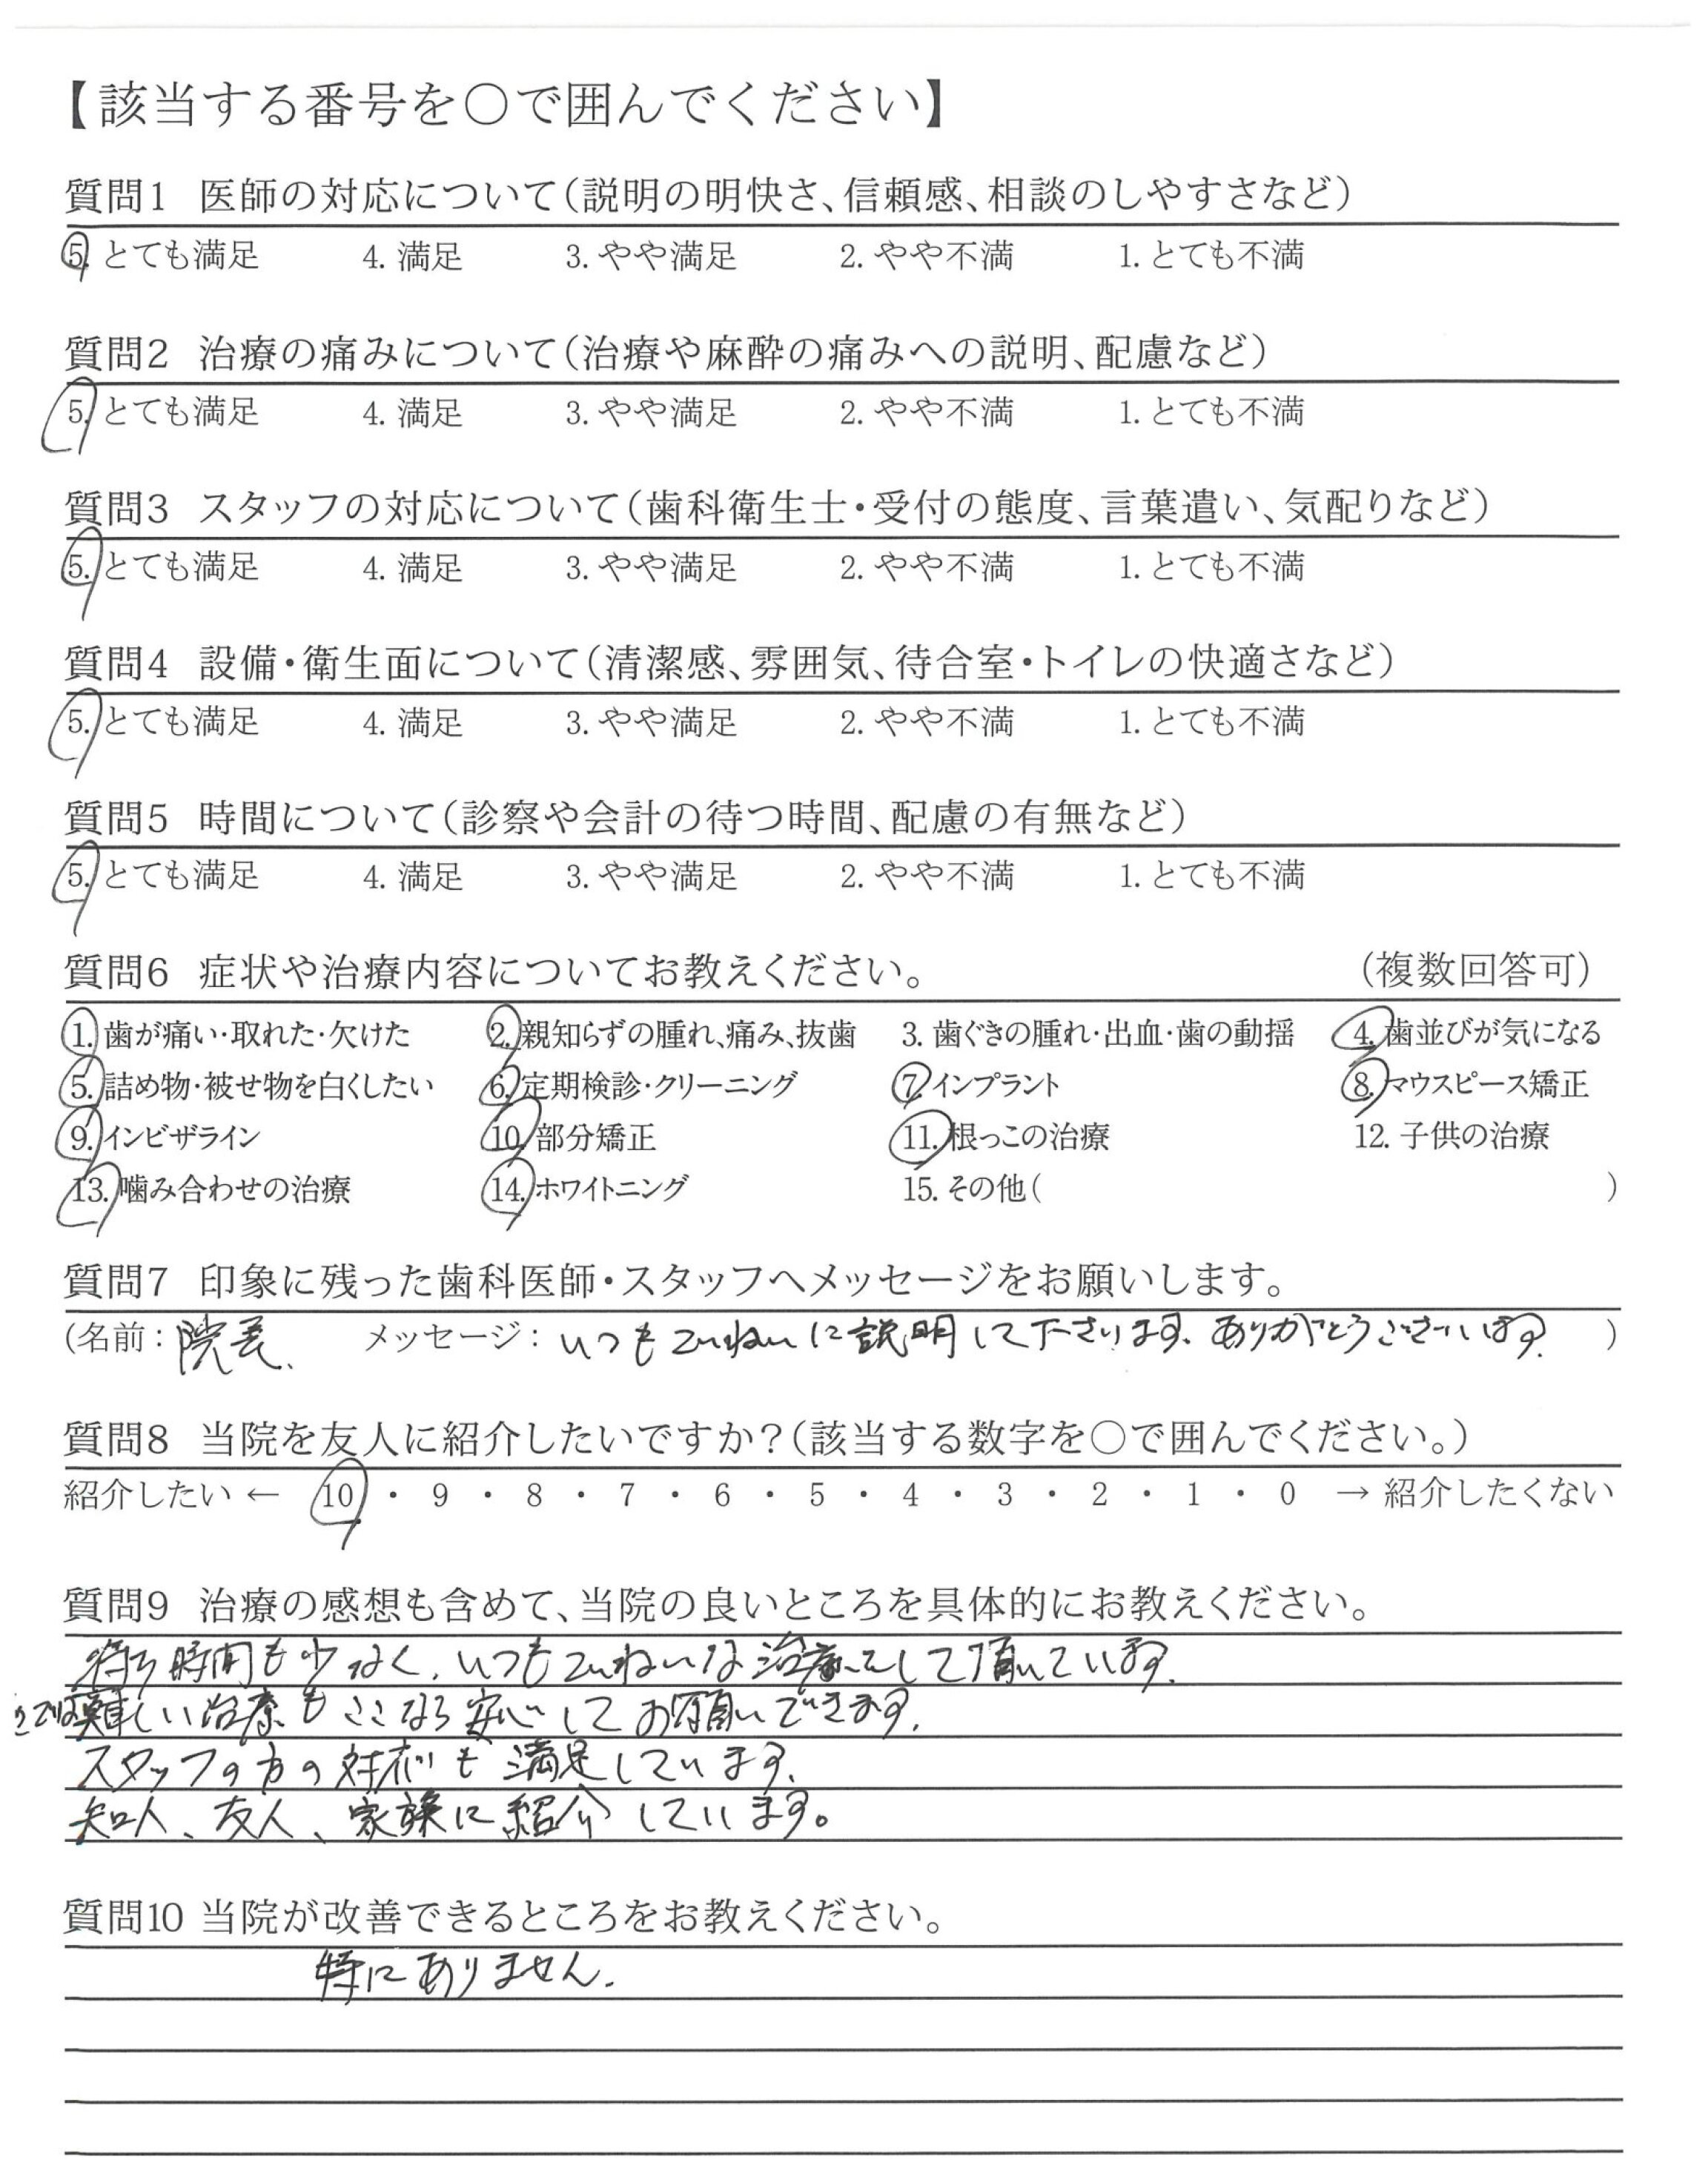 【該当する番号を○で囲んでください】
質問1 医師の対応について(説明の明快さ、信頼感、相談のしやすさなど)
5. とても満足 4. 満足 3. やや満足 2. やや不満 1. とても不満
質問2 治療の痛みについて(治療や麻酔の痛みへの説明、配慮など)
5. とても満足 4. 満足 3. やや満足 2. やや不満 1. とても不満
質問3 スタッフの対応について(歯科衛生士・受付の態度、言葉遣い、気配りなど)
5. とても満足 4. 満足 3. やや満足 2. やや不満 1. とても不満
質問4 設備・衛生面について(清潔感、雰囲気、待合室・トイレの快適さなど)
5. とても満足 4. 満足 3. やや満足 2. やや不満 1. とても不満
質問5 時間について(診察や会計の待つ時間、配慮の有無など)
5. とても満足 4. 満足 3. やや満足 2. やや不満 1. とても不満
質問6 症状や治療内容についてお教えください。 (複数回答可)
1. 歯が痛い・取れた・欠けた 2. 親知らずの腫れ、痛み、抜歯 3. 歯ぐきの腫れ・出血・歯の動揺 4. 歯並びが気になる
5. 詰め物・被せ物を白くしたい 6. 定期検診・クリーニング 7. インプラント 8. マウスピース矯正
9. インビザライン 10. 部分矯正 11. 根っこの治療 12. 子供の治療
13. 噛み合わせの治療 14. ホワイトニング 15. その他( )
質問7 印象に残った歯科医師・スタッフへメッセージをお願いします。
(名前: 院長、 メッセージ: いつもていねいに説明して下さります。ありがとうございます。 )
質問8 当院を友人に紹介したいですか?(該当する数字を○で囲んでください。)
紹介したい ← 10 ・ 9 ・ 8 ・ 7 ・ 6 ・ 5 ・ 4 ・ 3 ・ 2 ・ 1 ・ 0 → 紹介したくない
質問9 治療の感想も含めて、当院の良いところを具体的にお教えください。
待ち時間も少なく、いつもていねいな治療をして頂いています。
難しい治療もここなら安心してお願いできます。
スタッフの方の対応も満足しています。
知人、友人、家族に紹介しています。
質問10 当院が改善できるところをお教えください。
特にありません。